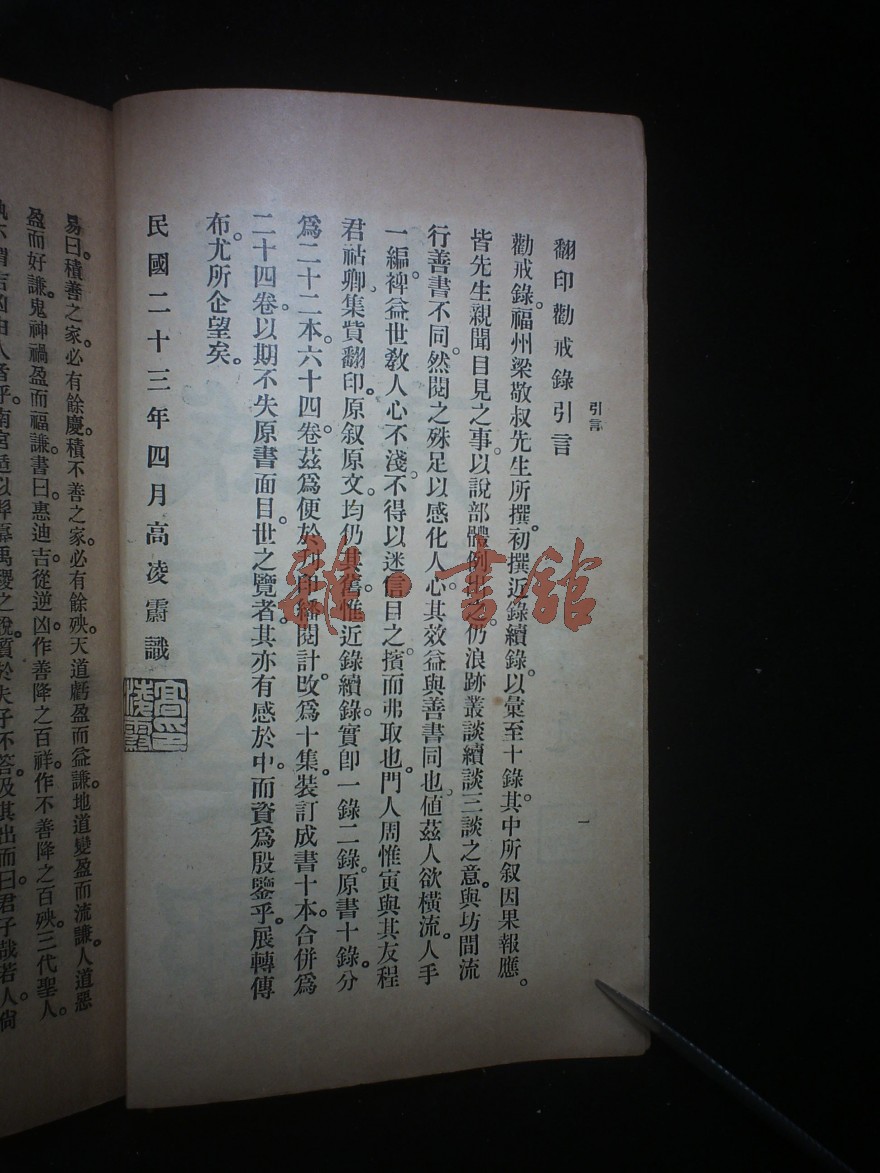 引言
一
翻印勸戒錄引言
勸戒錄。福州梁敬叔先生所撰。初撰近錄續錄。以彙至十錄。其中所叙因果報應。
皆先生親聞目見之事。以說部體例出之。仍浪跡叢談續談三談之意。與坊間流
行善書不同。然閱之殊足以感化人心。其效益與善書同也。値茲人欲橫流。人手
一編。裨益世敎人心不淺。不得以迷信目之。擯而弗取也。門人周惟寅與其友程
君祜卿。集貲翻印。原叙原文。均仍其舊。惟近錄續錄。實卽一錄二錄。原書十錄。分
爲二十二本。六十四卷。茲爲便於刋印繙閱計。改爲十集。裝訂成書十本。合併爲
二十四卷。以期不失原書面目。世之覽者。其亦有感於中。而資爲殷鑒乎。展轉傳
布。尤所企望矣。
民國二十三年四月高凌霨識
高凌霨印
易曰。積善之家必有餘慶。積不善之家必有餘殃。天道虧盈而益謙。地道變盈而流謙。人道惡
盈而好謙。鬼神禍盈而福謙。書曰。惠迪吉。從逆凶。作善降之百祥。作不善降之百殃。三代聖人。
孰不謂吉凶由人者乎。南宮适以羿奡禹稷之說。質於夫子。不答。及其出而曰。君子哉若人。尙
雜·書館